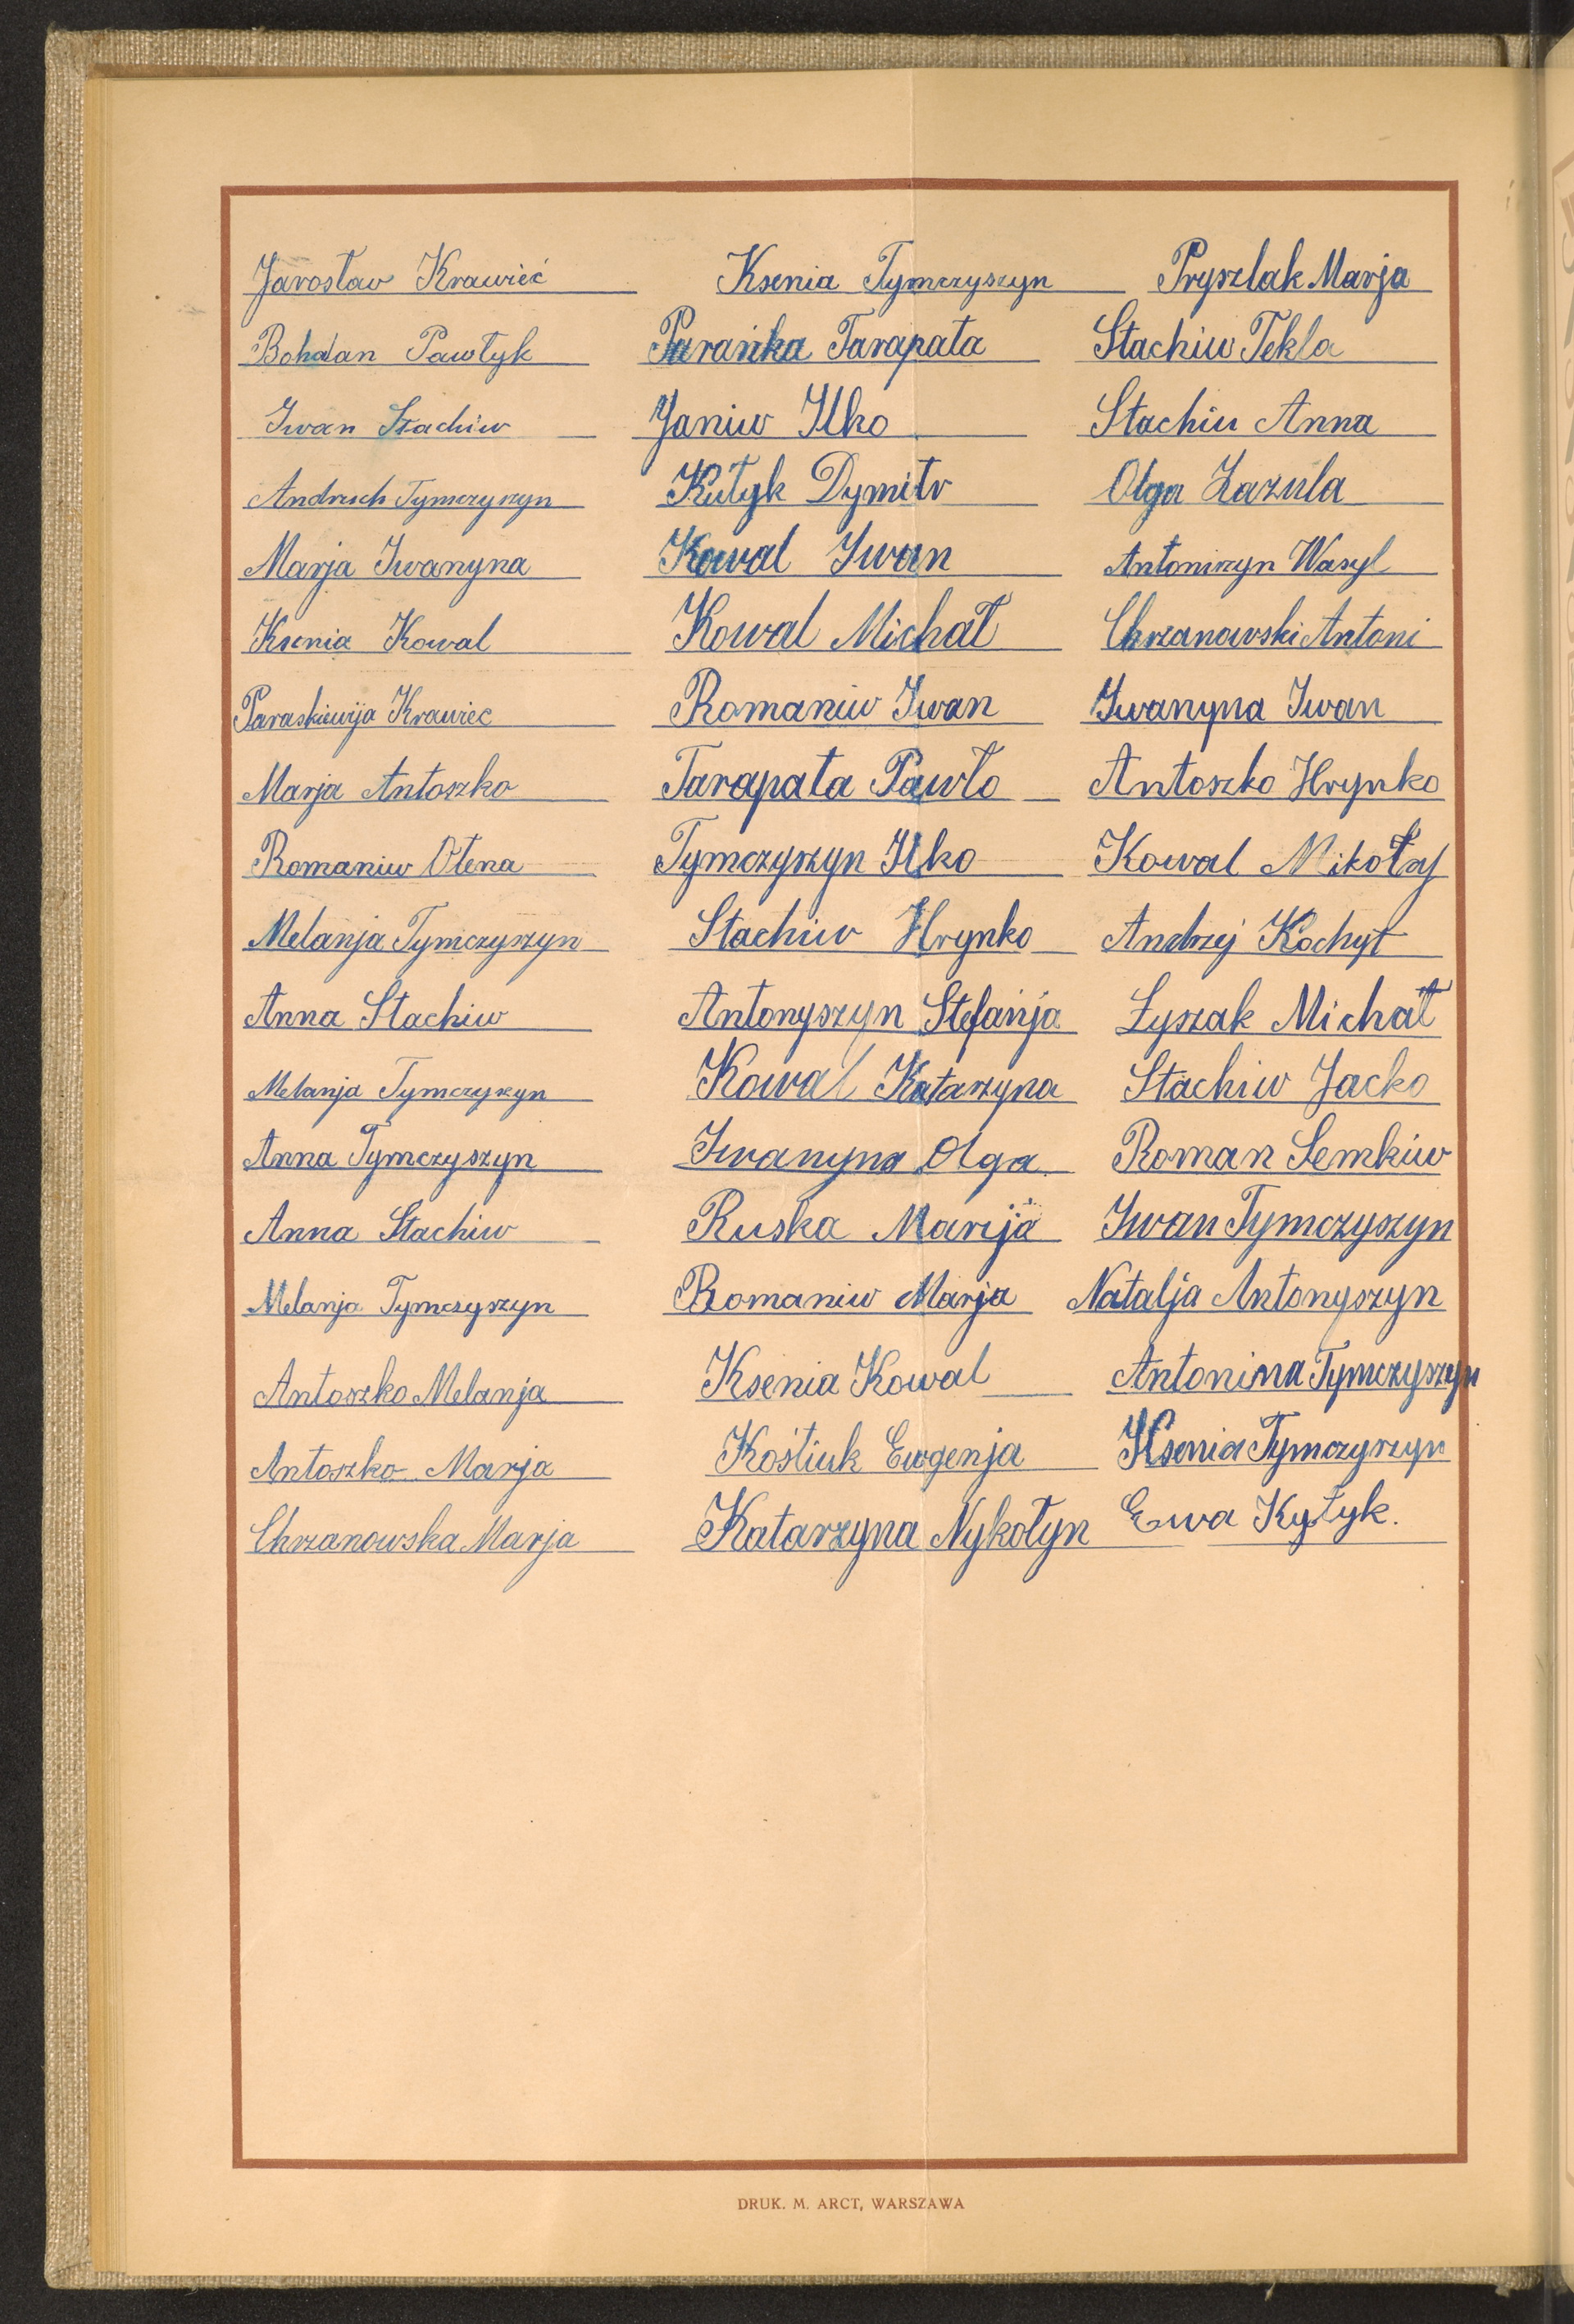 Jarosław Krawieć Ksenia Tymczyszyn Pryszlak Marja
Bohdan Pawłyk Parańka Tarapata Stachiw Tekla
Iwan Stachiw Janiw Ilko Stachiu Anna
Andruch Tymczyszyn Kutyk Dymitr Olga Zazula
Marja Iwanyna Kowal Iwan Antoniszyn Wasyl
Ksenia Kowal Kowal Michał Chrzanowski Antoni
Paraskiewija Krawiec Romaniw Iwan Iwanyna Iwan
Marja Antoszko Tarapata Pawło Antoszko Hrynko
Romaniw Ołena Tymczyszyn Ilko Kowal Mikołaj
Melanja Tymczyszyn Stachiw Hrynko Andrzej Kochyt
Anna Stachiw Antonyszyn Stefanja Łyszak Michał
Melanja Tymczyszyn Kowal Katarzyna Stachiw Jacko
Anna Tymczyszyn Iwanyna Olga Roman Semkiw
Anna Stachiw Ruska Marija Iwan Tymczyszyn
Melanja Tymczyszyn Romaniw Marja Natalja Antonyszyn
Antoszko Melanja Ksenia Kowal Antonina Tymczyszyn
Antoszko Marja Kośtiuk Ewgenja Ksenia Tymczyszyn
Chrzanowska Marja Katarzyna Nykołyn Ewa Kytyk.
DRUK. M. ARCT, WARSZAWA